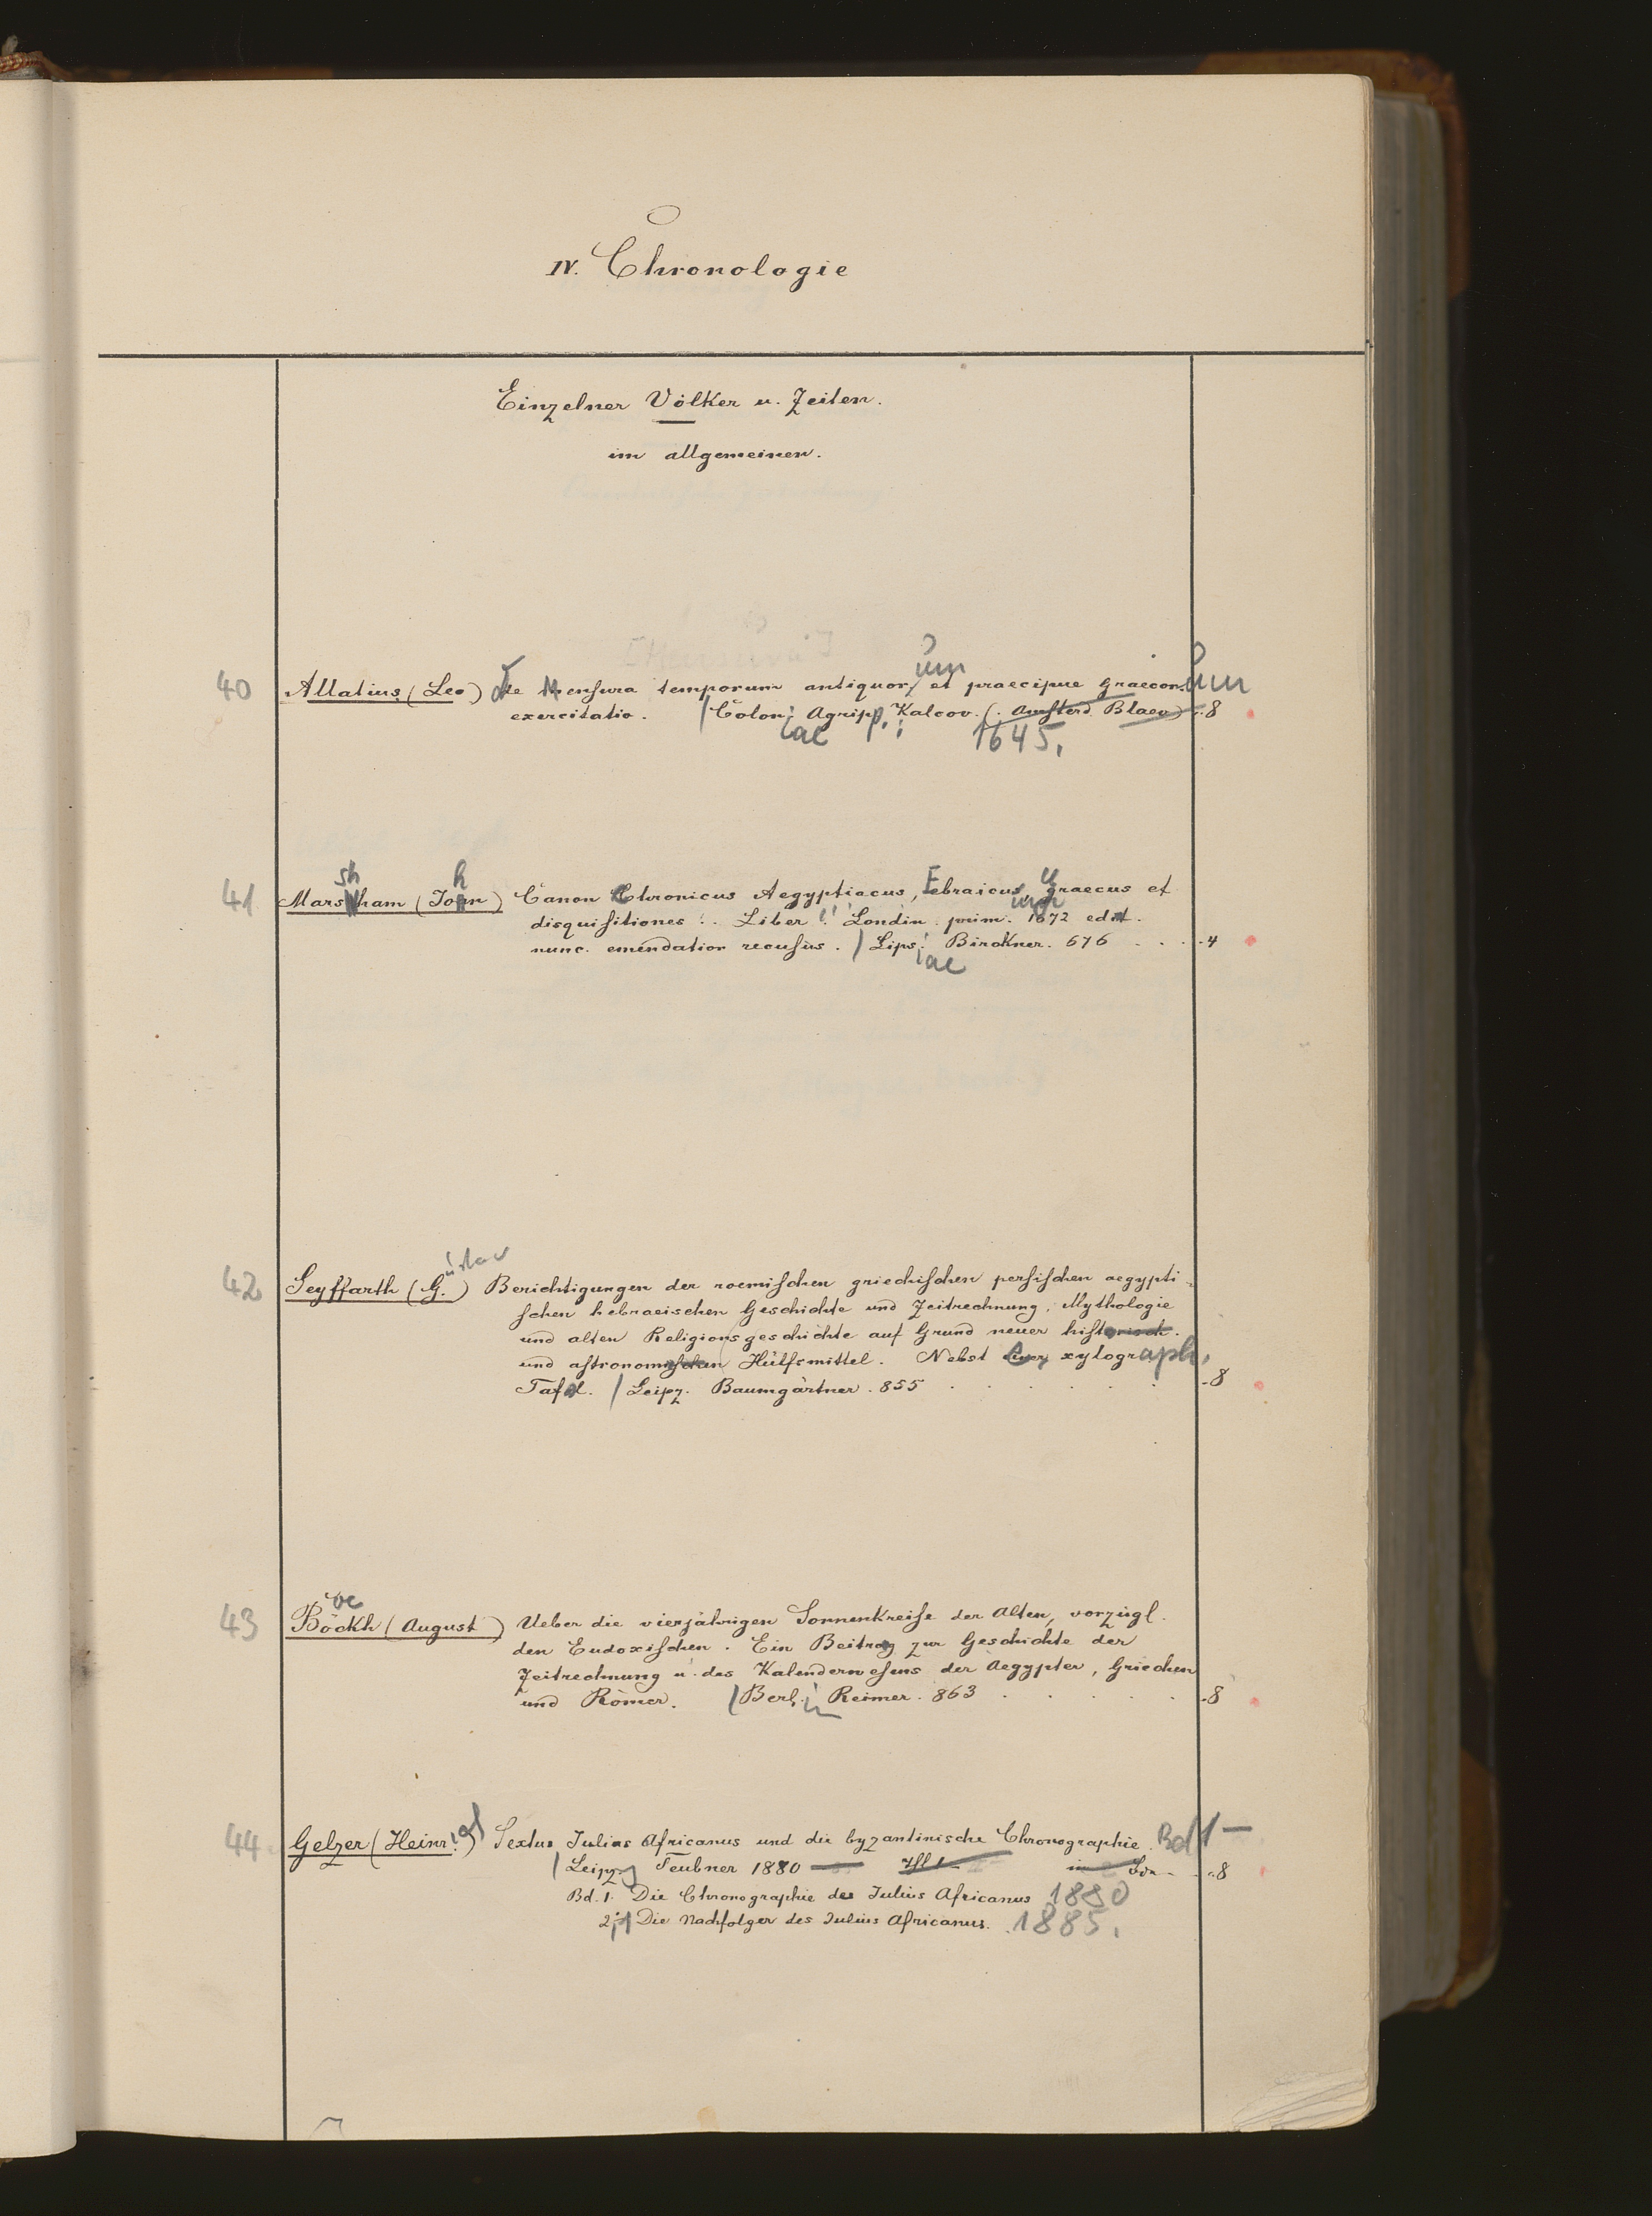 IV. Chronologie
Einzelner Völker u. Zeiten.
im allgemeinen.
40 Allatius (Leo) de Mensura temporum antiquorum et praecipue Graecorum
exercitatio. / Coloniae Agripp. Kalcov. (. Amsterd. Blaeu) 8
1645.
41 Marsham (John) Canon Chronicus Aegyptiacus, Ebraicus, graecus et
disquisitiones . . Liber Londin. prim. 1672 edit.
nunc. emendatior recusus. / Lipsiae Birckner. 676 . . . 4
42 Seyffarth (Gustav) Berichtigungen der roemischen griechischen persischen aegypti-
schen hebraeischen Geschichte und Zeitrechnung, Mythologie
und alten Religionsgeschichte auf Grund neuer historisch.
und astronomischen Hülfsmittel. Nebst xylograph.
Tafel. / Leipz. Baumgärtner. 855 . . . . . 8
43 Böckh (August) Ueber die vierjährigen Sonnenkreise der Alten, vorzügl.
den Eudoxischen. Ein Beitrag zur Geschichte der
Zeitrechnung u. des Kalenderwesens der Aegypter, Griechen
und Römer. / Berlin Reimer. 863 . . . . . 8
44 Gelzer (Heinrich) Sextus Julius Africanus und die byzantinische Chronographie. Bd 1 —
/ Leipzg Teubner 1880 — 8
Bd. 1. Die Chronographie des Julius Africanus 1880
2,1 Die Nachfolger des Julius Africanus. 1885.